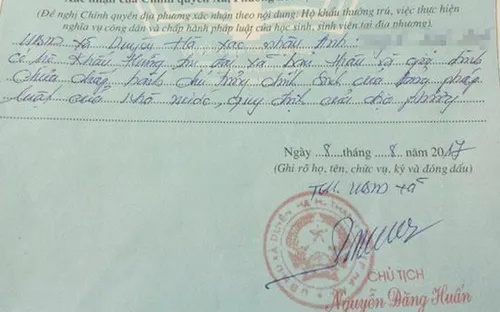 Xác nhận của Chính quyền địa phương
(Đề nghị Chính quyền địa phương xác nhận theo nội dung: Hộ khẩu thường trú, việc thực hiện
nghĩa vụ công dân và chấp hành pháp luật của học sinh, sinh viên tại địa phương).
UBND xã Duyên Hà xác nhận Anh:
Có hộ khẩu thường trú tại xã bản thân và gia đình
chưa chấp hành chủ trương chính sách của đảng pháp
luật của nhà nước, quy định của địa phương
Ngày 8 tháng 8 năm 2017
(Ghi rõ họ, tên, chức vụ, ký và đóng dấu)
TM. UBND xã
U.B.N.D XÃ DUYÊN HÀ H. THANH
CHỦ TỊCH
Nguyễn Đăng Huấn